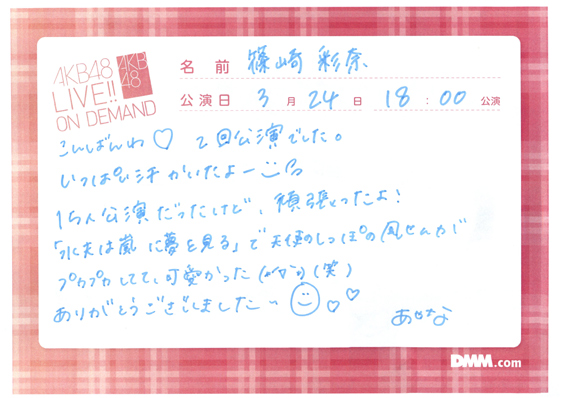 AKB48
LIVE!!
ON DEMAND
AKB
48
名前 篠崎 彩奈
公演日 3月24日 18:00公演
こんばんわ♡ 2回公演でした。
いっぱい汗かいたよー
15人公演だったけど、頑張ったよ!
「水夫は嵐に夢を見る」で天使のしっぽの風せんが
プカプカしてて、可愛かった (笑)
ありがとうございました〜 ♡♡
あやな
DMM.com